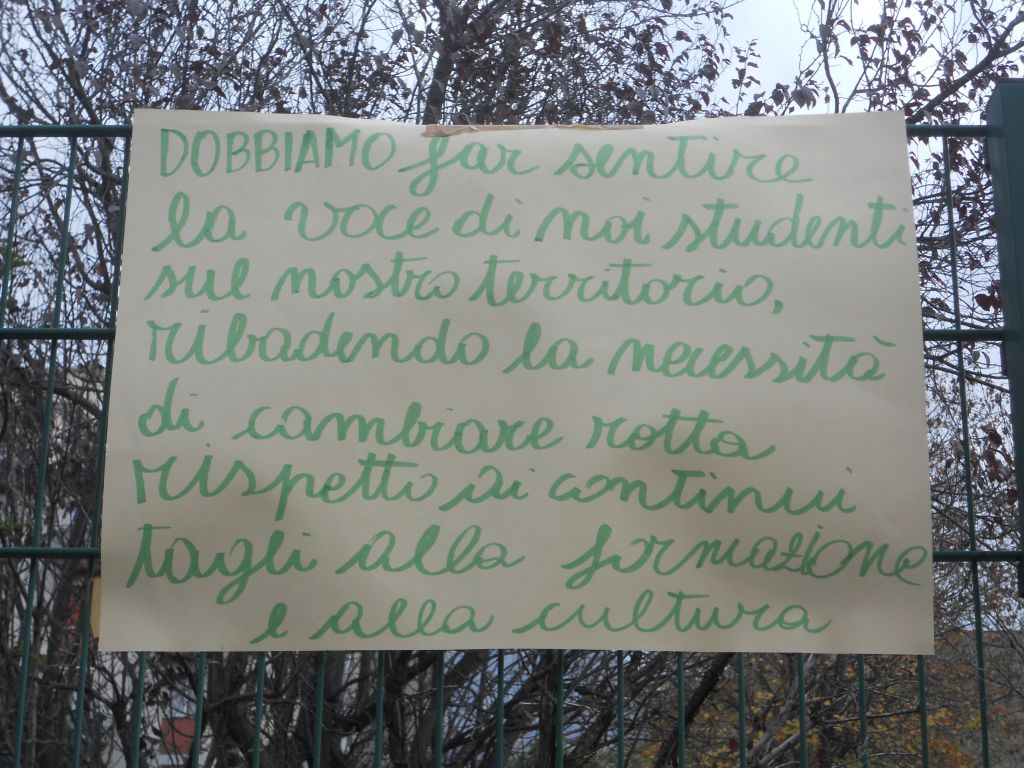 DOBBIAMO far sentire
la voce di noi studenti
sul nostro territorio,
ribadendo la necessità
di cambiare rotta
rispetto ai continui
tagli alla formazione
e alla cultura